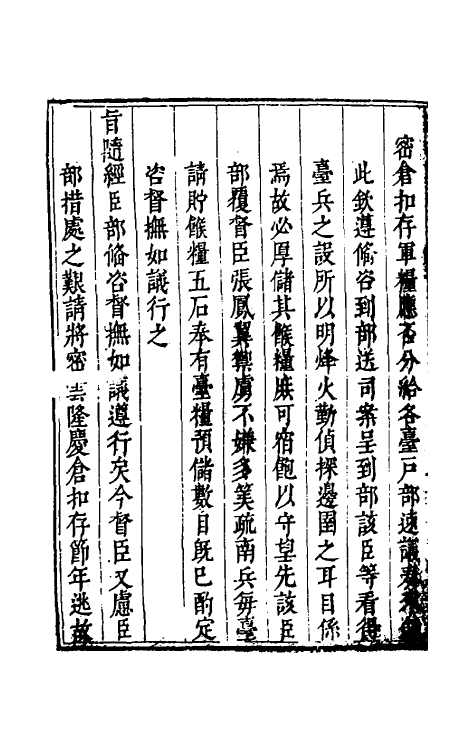 密倉扣存軍糧應否分給各臺戸部速議
此欽遵俻咨到部送司案呈到部該臣等看得
臺兵之設所以明烽火勤偵探邊圉之耳目係
焉故必厚儲其餱糧庶可宿飽以守望先該臣
部覆督臣張鳳翼禦虜不嫌多筭疏南兵每臺
請貯餱糧五石奉有臺糧預儲數目旣已酌定
咨督撫如議行之
旨隨經臣部俻咨督撫如議遵行矣今督臣又慮臣
部措處之艱請將密雲隆慶倉扣存節年逃故